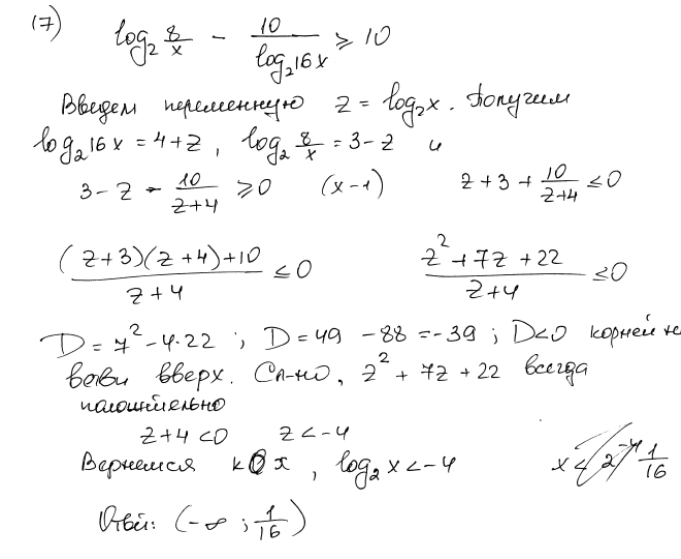 17) log₂ 8/x - 10/log₂16x ≥ 10
Введем переменную z = log₂x. Получим
log₂16x = 4+z, log₂ 8/x = 3-z и
3-z - 10/(z+4) ≥ 0 (x-1) z+3+10/(z+4) ≤ 0
((z+3)(z+4)+10)/(z+4) ≤ 0 (z²+7z+22)/(z+4) ≤ 0
D = 7²-4·22; D = 49-88 = -39; D<0 корней н
ветви вверх. Сл-но, z²+7z+22 всегда
положительно
z+4<0 z<-4
Вернемся к x, log₂x<-4 x< 1/16
Ответ: (-∞; 1/16)